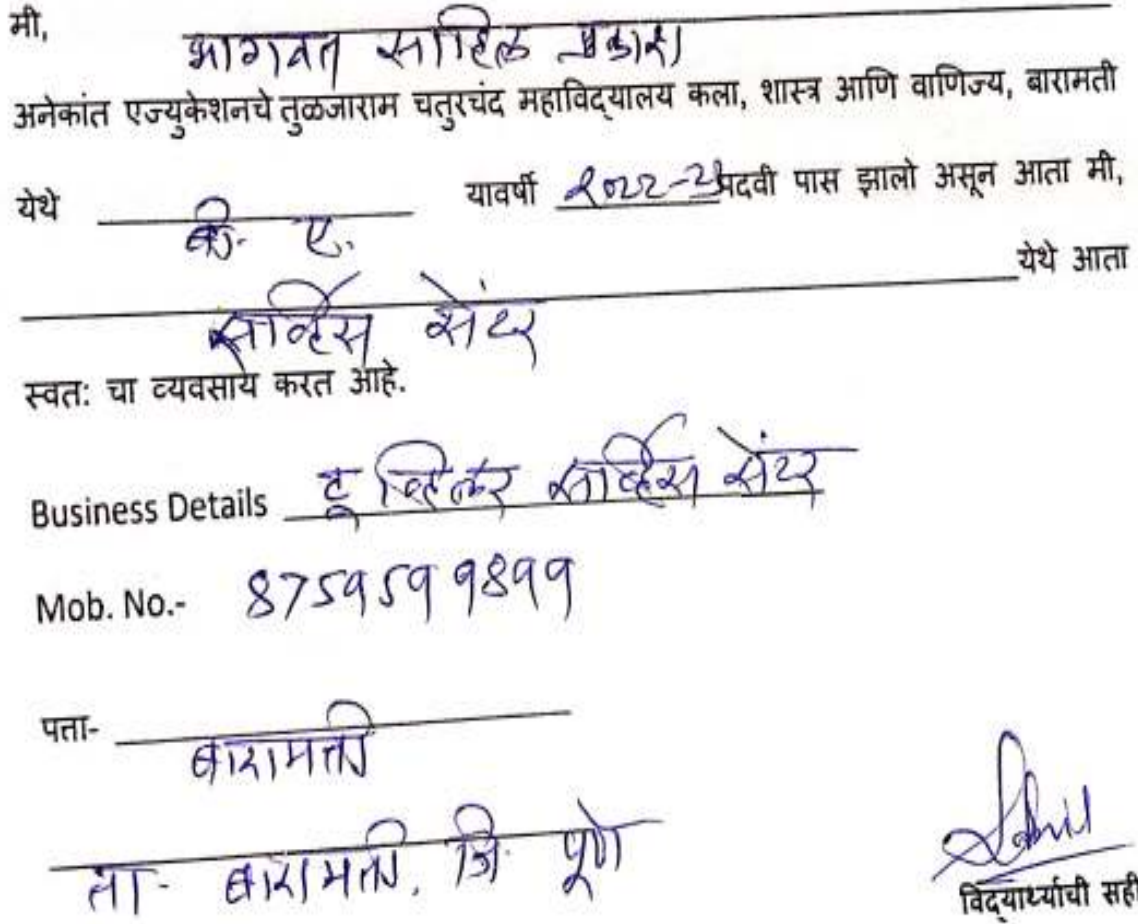 मी,
भागवत साहिल प्रकाश
अनेकांत एज्युकेशनचे तुळजाराम चतुरचंद महाविद्यालय कला, शास्त्र आणि वाणिज्य, बारामती
येथे बी. ए. यावर्षी २०२२-२३ पदवी पास झालो असून आता मी,
सर्व्हिस सेंटर येथे आता
स्वत: चा व्यवसाय करत आहे.
Business Details टू व्हिलर सर्व्हिस सेंटर
Mob. No.-
पत्ता- बारामती
ता- बारामती, जि. पूणे
विद्यार्थ्याची सही